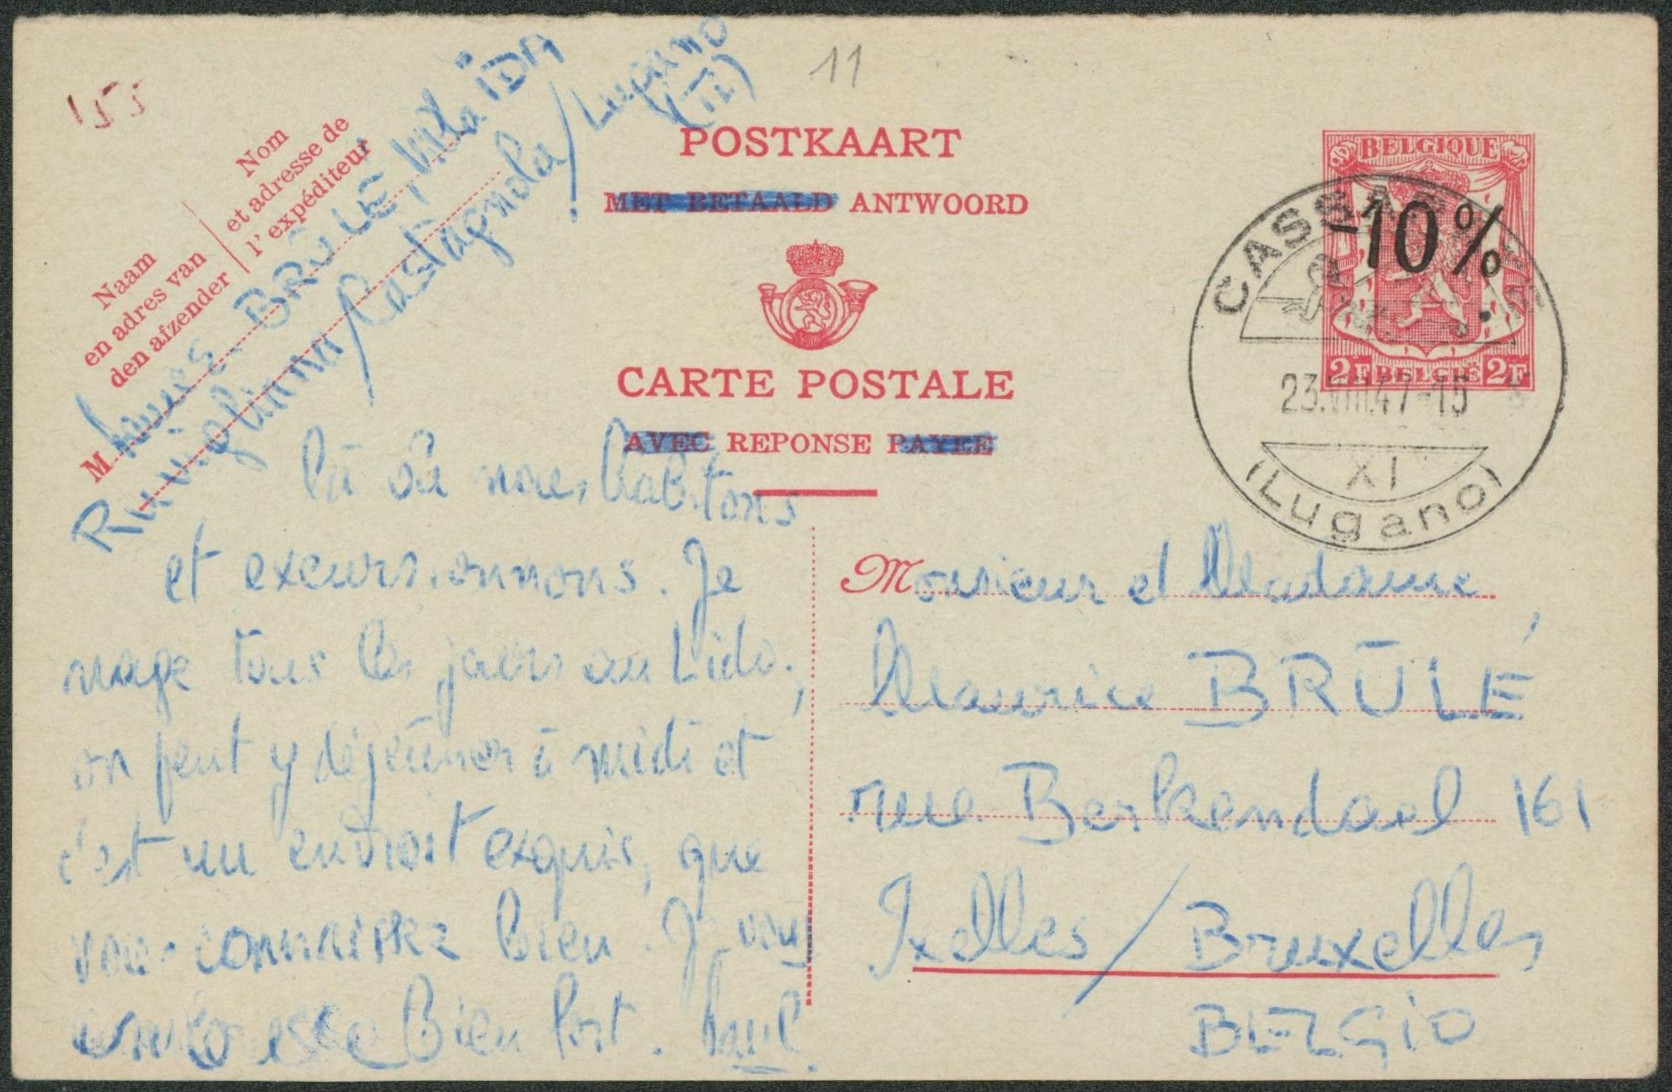 155
11
Nom
et adresse de
l'expéditeur
Naam
en adres van
den afzender
M Louise BRÛLÉ, Villa iDA
Ruvigliana/Castagnola/Lugano
(TI)
POSTKAART
MET BETAALD ANTWOORD
CARTE POSTALE
AVEC REPONSE PAYEE
BELGIQUE
-10%
2F BELGIE 2F
CASSARATE
23.VIII.47-15
XI
(Lugano)
là où nous habitons
et excursionnons. Je
nage tous les jours au Lido,
on peut y déjeûner à midi et
c'est un endroit exquis, que
vous connaissez bien. Je vous
embrasse bien fort.
Monsieur et Madame
Maurice BRÛLÉ
rue Berkendael 161
Ixelles/Bruxelles
BELGiO